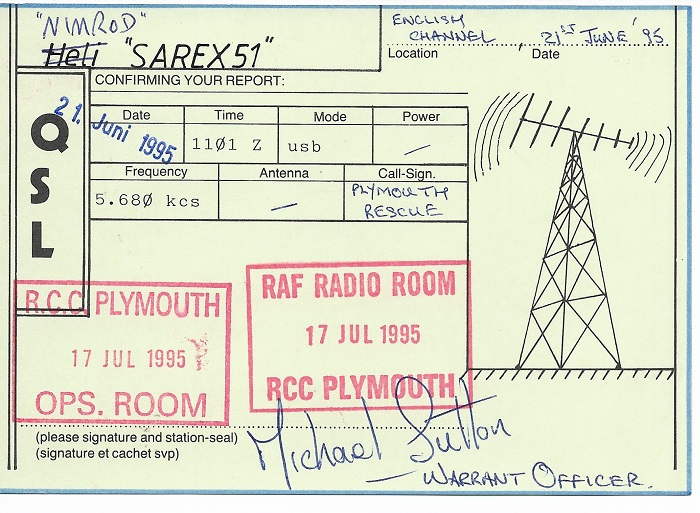 "NIMROD"
Heli "SAREX51"
ENGLISH
CHANNEL
21ST JUNE '95
Location
Date
CONFIRMING YOUR REPORT:
QSL
Date
Time
Mode
Power
21. Juni 1995
11Ø1 Z
usb
—
Frequency
Antenna
Call-Sign.
5.68Ø kcs
—
PLYMOUTH
RESCUE
R.C.C PLYMOUTH
17 JUL 1995
OPS. ROOM
RAF RADIO ROOM
17 JUL 1995
RCC PLYMOUTH
(please signature and station-seal)
(signature et cachet svp)
Michael Sutton
— WARRANT OFFICER.